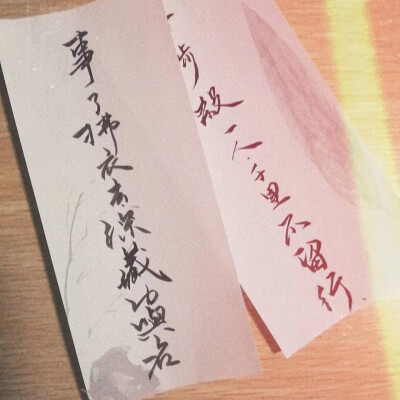 十步殺一人.千里不留行.
事了拂衣去深藏功與名